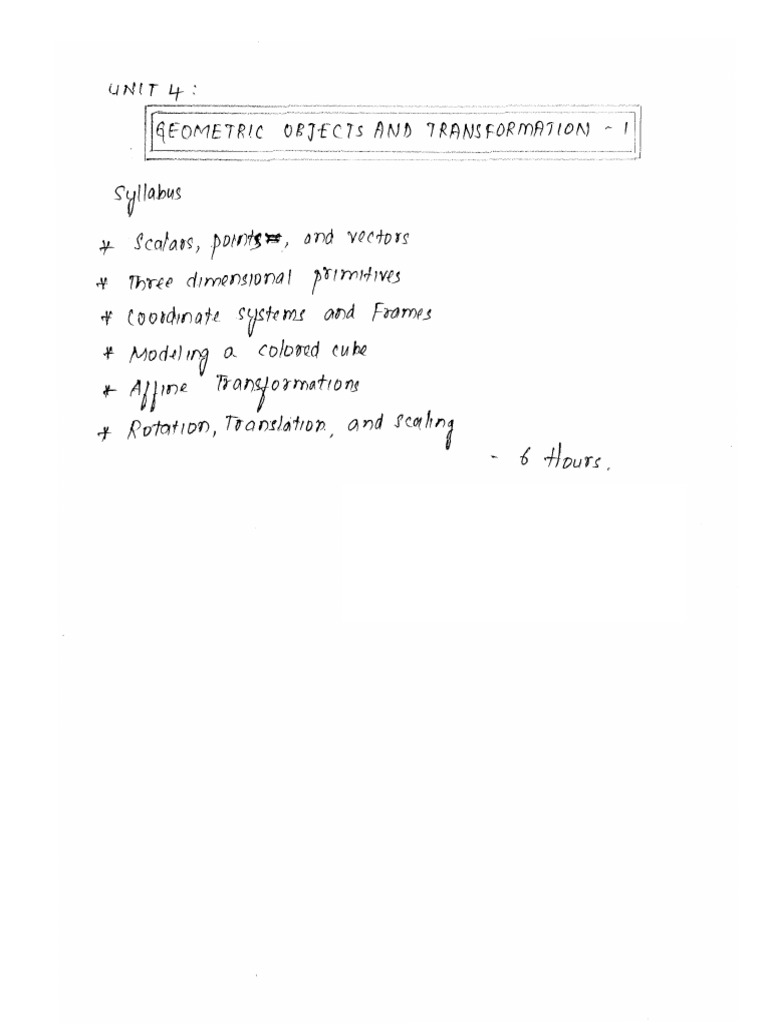 UNIT 4:
GEOMETRIC OBJECTS AND TRANSFORMATION - 1
Syllabus
* Scalars, points, and vectors
* Three dimensional primitives
* Coordinate systems and Frames
* Modeling a colored cube
* Affine Transformations
* Rotation, Translation, and scaling
- 6 Hours.